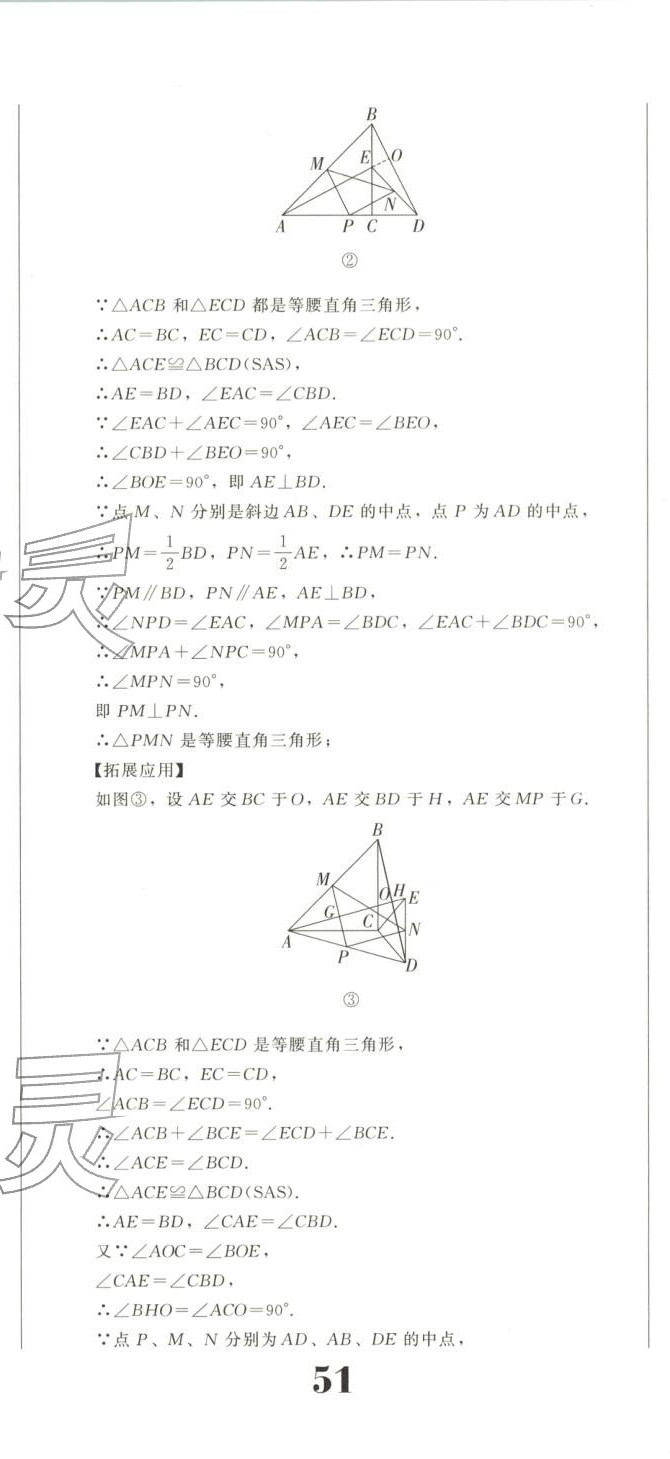 B
M
E
O
N
A
P
C
D
②
∵△ACB 和△ECD 都是等腰直角三角形，
∴AC=BC，EC=CD，∠ACB=∠ECD=90°.
∴△ACE≌△BCD(SAS)，
∴AE=BD，∠EAC=∠CBD.
∵∠EAC+∠AEC=90°，∠AEC=∠BEO，
∴∠CBD+∠BEO=90°，
∴∠BOE=90°，即 AE⊥BD.
∵点 M、N 分别是斜边 AB、DE 的中点，点 P 为 AD 的中点，
∴PM=1/2BD，PN=1/2AE，∴PM=PN.
∵PM∥BD，PN∥AE，AE⊥BD，
∴∠NPD=∠EAC，∠MPA=∠BDC，∠EAC+∠BDC=90°，
∴∠MPA+∠NPC=90°，
∴∠MPN=90°，
即 PM⊥PN.
∴△PMN 是等腰直角三角形；
【拓展应用】
如图③，设 AE 交 BC 于 O，AE 交 BD 于 H，AE 交 MP 于 G.
B
M
O
H
E
G
C
N
A
P
D
③
∵△ACB 和△ECD 是等腰直角三角形，
∴AC=BC，EC=CD，
∠ACB=∠ECD=90°.
∴∠ACB+∠BCE=∠ECD+∠BCE.
∴∠ACE=∠BCD.
∴△ACE≌△BCD(SAS).
∴AE=BD，∠CAE=∠CBD.
又∵∠AOC=∠BOE，
∠CAE=∠CBD，
∴∠BHO=∠ACO=90°.
∵点 P、M、N 分别为 AD、AB、DE 的中点，
51
灵
灵